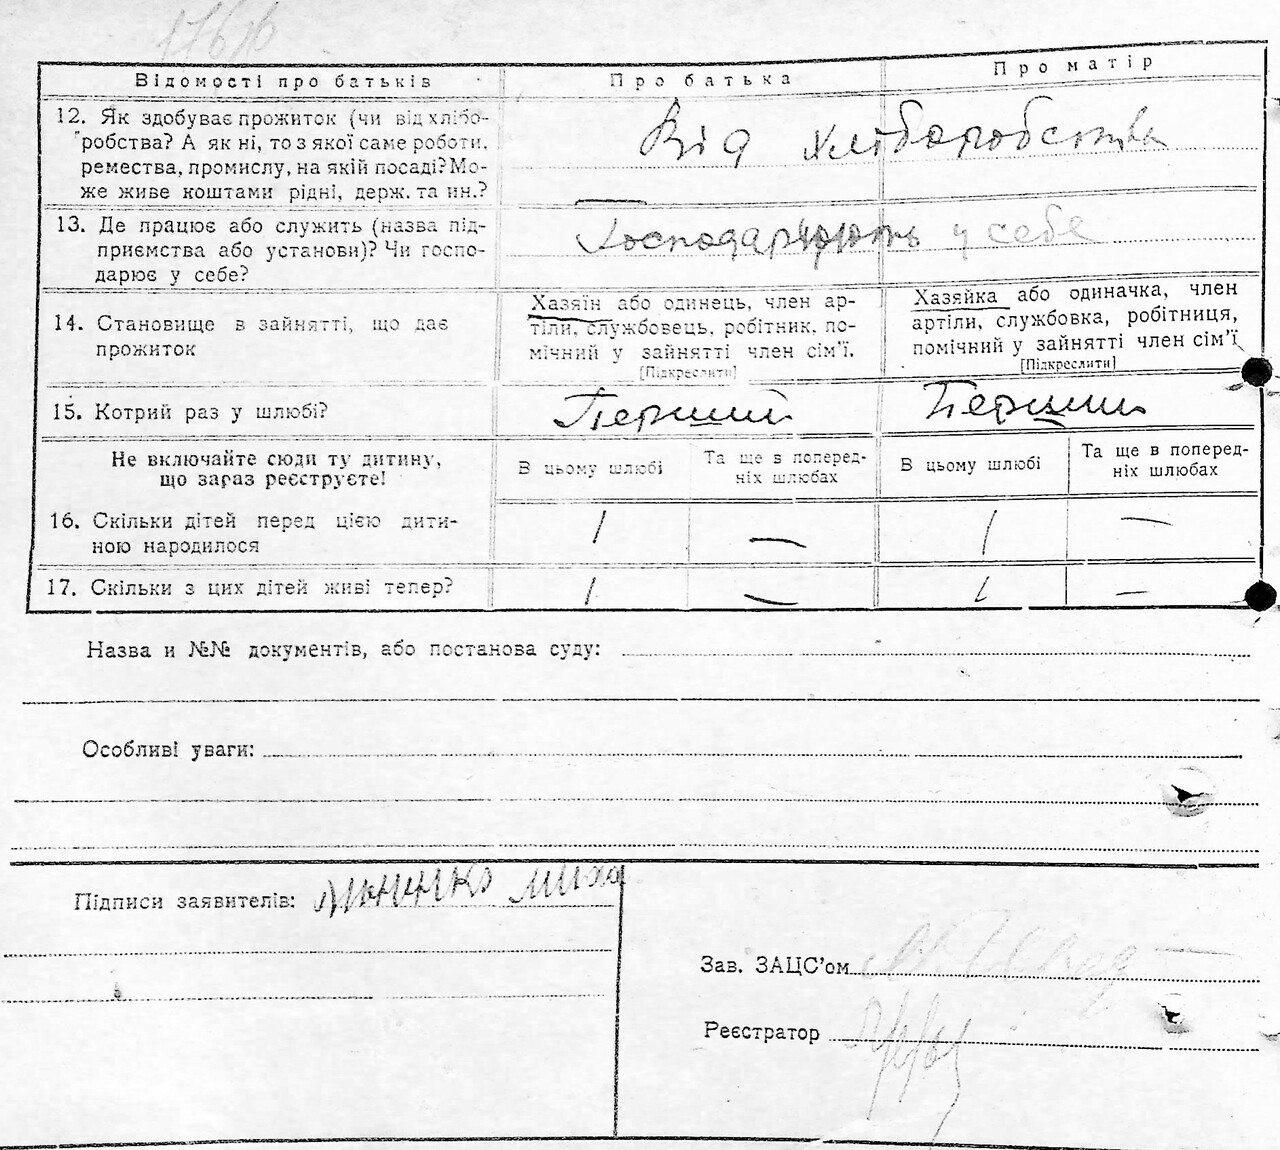 Відомості про батьків
Про батька
Про матір
12. Як здобуває прожиток (чи від хлібо-
робства? А як ні, то з якої саме роботи,
ремества, промислу, на якій посаді? Мо-
же живе коштами рідні, держ. та ин.?
Від хліборобства
13. Де працює або служить (назва під-
приємства або установи)? Чи госпо-
дарює у себе?
Господарюють у себе
14. Становище в зайнятті, що дає
прожиток
Хазяїн або одинець, член ар-
тіли, службовець, робітник, по-
мічний у зайнятті член сім'ї.
[Підкреслити]
Хазяйка або одиначка, член
артіли, службовка, робітниця,
помічний у зайнятті член сім'ї
[Підкреслити]
15. Котрий раз у шлюбі?
Перший
Перший
Не включайте сюди ту дитину,
що зараз реєструєте!
В цьому шлюбі
Та ще в поперед-
ніх шлюбах
В цьому шлюбі
Та ще в поперед-
ніх шлюбах
16. Скільки дітей перед цією дити-
ною народилося
1 — 1 —
17. Скільки з цих дітей живі тепер?
1 — 1 —
Назва и №№ документів, або постанова суду:
Особливі уваги:
Підписи заявителів:
Зав. ЗАЦС'ом
Реєстратор